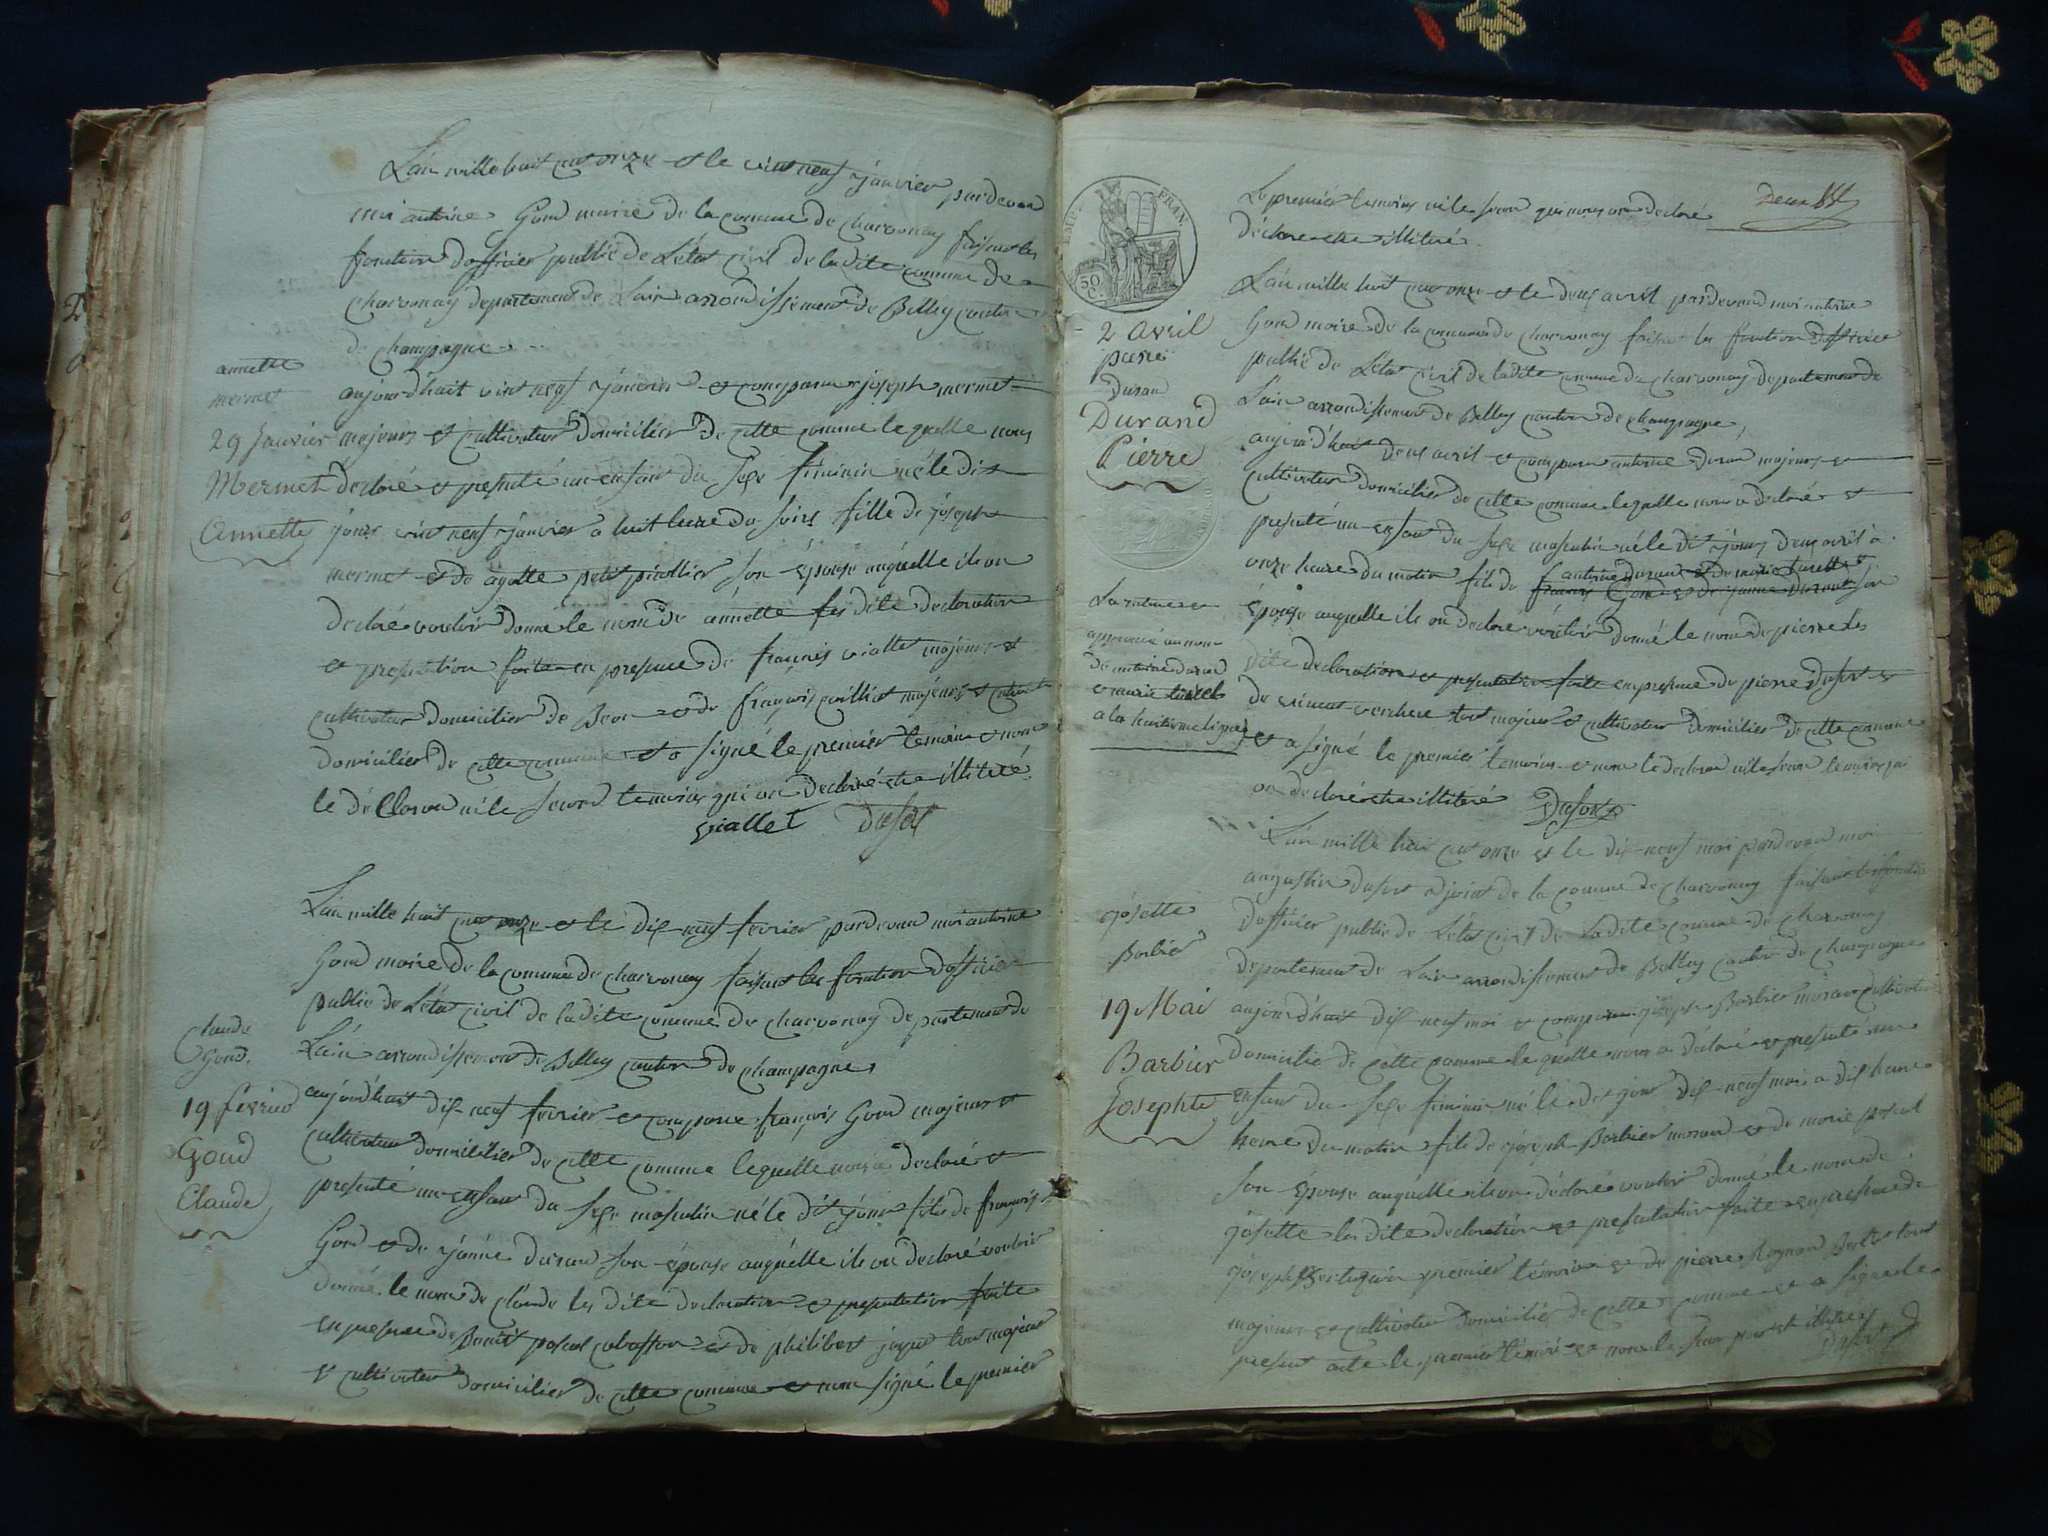 L'an mille huit cent onze et le vint neuf janvier pardevan
moi antoine Goud maire de la comune de charvonay faisant les
fonction d'officier publie de L'état civil de ladite comune de
charvonay departement de Lain arrondissement de Belley canton
de champagne
annette
mermet
29 Janvier
Mermet
Annette
aujourd'huit vint neuf janvier et comparu joseph mermet
majeurs et cultivateur domicilier de cette comune le quelle nous
declaré et presenté un enfant du sexe féminin né le dit
jour vint neuf janvier a huit heure du soire fille de joseph
mermet et de agatte petit son épouse auquelle ils on
declaré vouloir donné le nom de annette les dite declaration
et presentation faite en presence de françois viallet majeurs et
cultivateur domicilier de Beon et de françois majeurs et
domicilier de cette comune et a signé le premier temoin et non
le déclaran ni le second temoins qui on declaré etre illitéré
viallet Dufort
L'an mille huit cent onze et le dix neuf fevrier pardevan moi antoine
Goud maire de la comune de charvonay faisant les fonction d'officier
public de L'état civil de ladite comune de charvonay departement de
Lain arrondissement de Belley canton de champagne
Claude
Goud.
19 fevrier
Goud
Claude
aujourd'huit dix neuf fevrier et comparu françois Goud majeurs et
cultivateur domicilier de cette comune lequelle nous a declaré et
presenté un enfant du sexe masculin né le dit jour fils de françois
Goud et de jeanne durand son épouse auquelle ils on declaré vouloir
donné le nom de claude les dite declaration et presentation faite
en presence de Benoit pascal et de philibert tous majeur
et cultivateur domicilier de cette comune et non signé le premier
EMP. FRAN.
50 C.
Le premier temoins ni le second qui nous on declaré
déclare etre illitéré
Deux
2 avril
piere
Duran
Durand
Pierre
L'an mille huit cent onze et le deux avril pardevand moi antoine
Goud maire de la comune de charvonay faisant les fonction d'officier
publie de L'état civil de ladite comune de charvonay departement de
Lain arrondissement de Belley canton de champagne
aujourd'huit deux avril et comparu antoine duran majeurs et
cultivateur domicilier de cette comune lequelle nous a declaré et
presenté un enfant du sexe masculin né le dit jour deux avril a
antoine duran et de marie
onze heure du matin fils de françois Goud et de jeanne durand son
épouse auquelle ils on declaré vouloir donné le nom de pierre les
dite declaration et presentation faite en presence de pierre Dufort et
de vincent verchere tous majeur et cultivateur domicilier de cette comune
et a signé le premier temoins et non le declaran ni le second temoins qui
on declaré etre illitéré Dufort
La rature
approuvé au nom
de antoine durand
et marie
a la huitieme ligne
L'an mille huit cent onze et le dix neuf mai pardevan moi
augustin dufort adjoint de la comune de charvonay faisant les fonction
d'officier public de L'état civil de ladite comune de charvonay
departement de Lain arrondissement de Belley canton de champagne
josette
Barbier
19 Mai
Barbier
Josephte
aujourd'huit dix neuf mai et comparu joseph Barbier cultivateur
domicilié de cette comune lequelle nous a déclaré et presenté un
enfant du sexe féminin né le dit jour dix neuf mai a dix heure
heure du matin fils de joseph Barbier et de marie pascal
son épouse auquelle ils on déclaré vouloir donné le nom de
josette les dite declaration et presentation faite en presence de
joseph premier témoin et de pierre tous
majeurs et cultivateur domicilier de cette comune et a signé le
present acte le premier témoin et non le second pour etre illitéré
Dufort